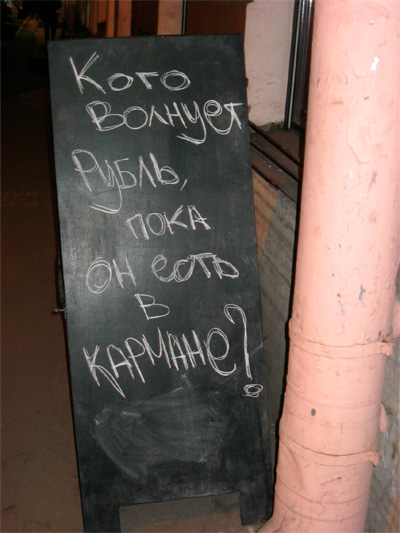 Кого
волнует
Рубль,
пока
он есть
в
кармане?